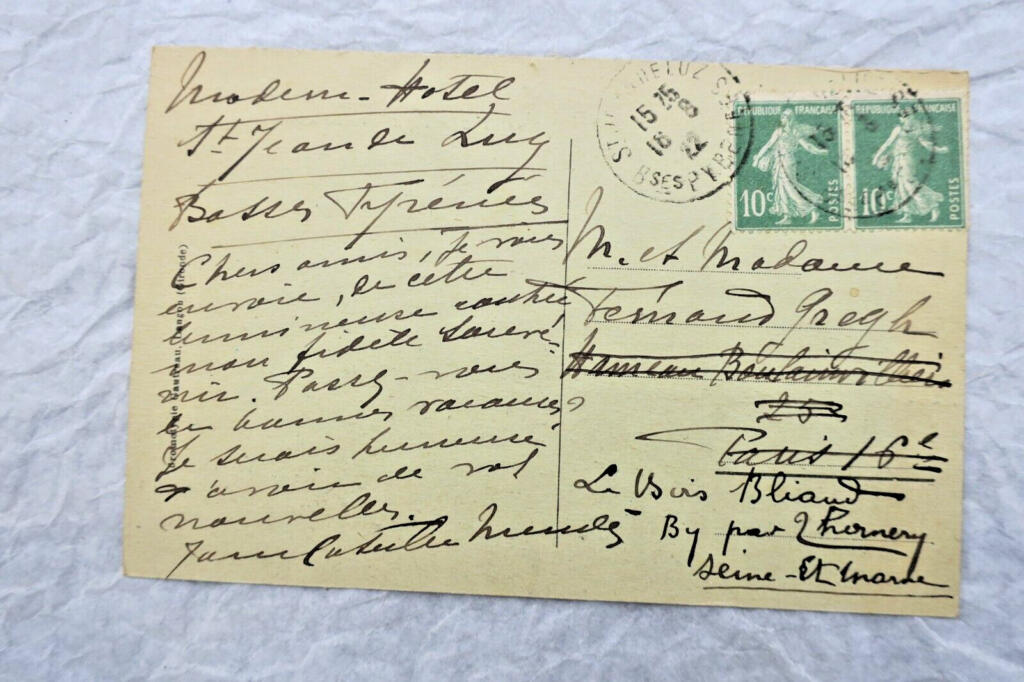 Modern-Hotel
St Jean de Luz
Basses Pyrénées
Chers amis, Je vous
envoie, de cette
lumineuse contrée
mon fidèle souve-
nir. Passez-vous
de bonnes vacances?
Je serais heureuse
d'avoir de vos
nouvelles.
Jane Catulle Mendès
ST JEAN DE LUZ
15 25
16 8
22
BSES PYRENEES
REPUBLIQUE FRANÇAISE
10c
POSTES
REPUBLIQUE FRANÇAISE
10c
POSTES
M. et Madame
Fernand Gregh
Hameau Boulainvilliers
25
Paris 16e
Le Bois Bliaud
By par Thomery
Seine-Et-Marne
Langon (Gironde)